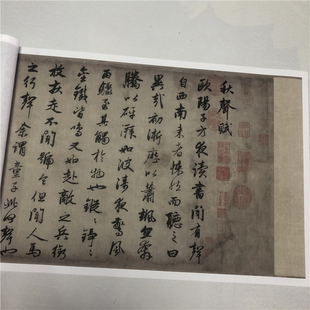 秋聲賦
歐陽子方夜讀書聞有聲
自西南来者悚然而聽之曰
異哉初淅瀝以蕭颯忽奔
騰以砰湃如波濤夜驚風
雨驟至其觸於物也鏦〻錚〻
金鐵皆鳴又如赴敵之兵銜
枚疾走不聞號令但聞人馬
之行聲余謂童子此何聲也